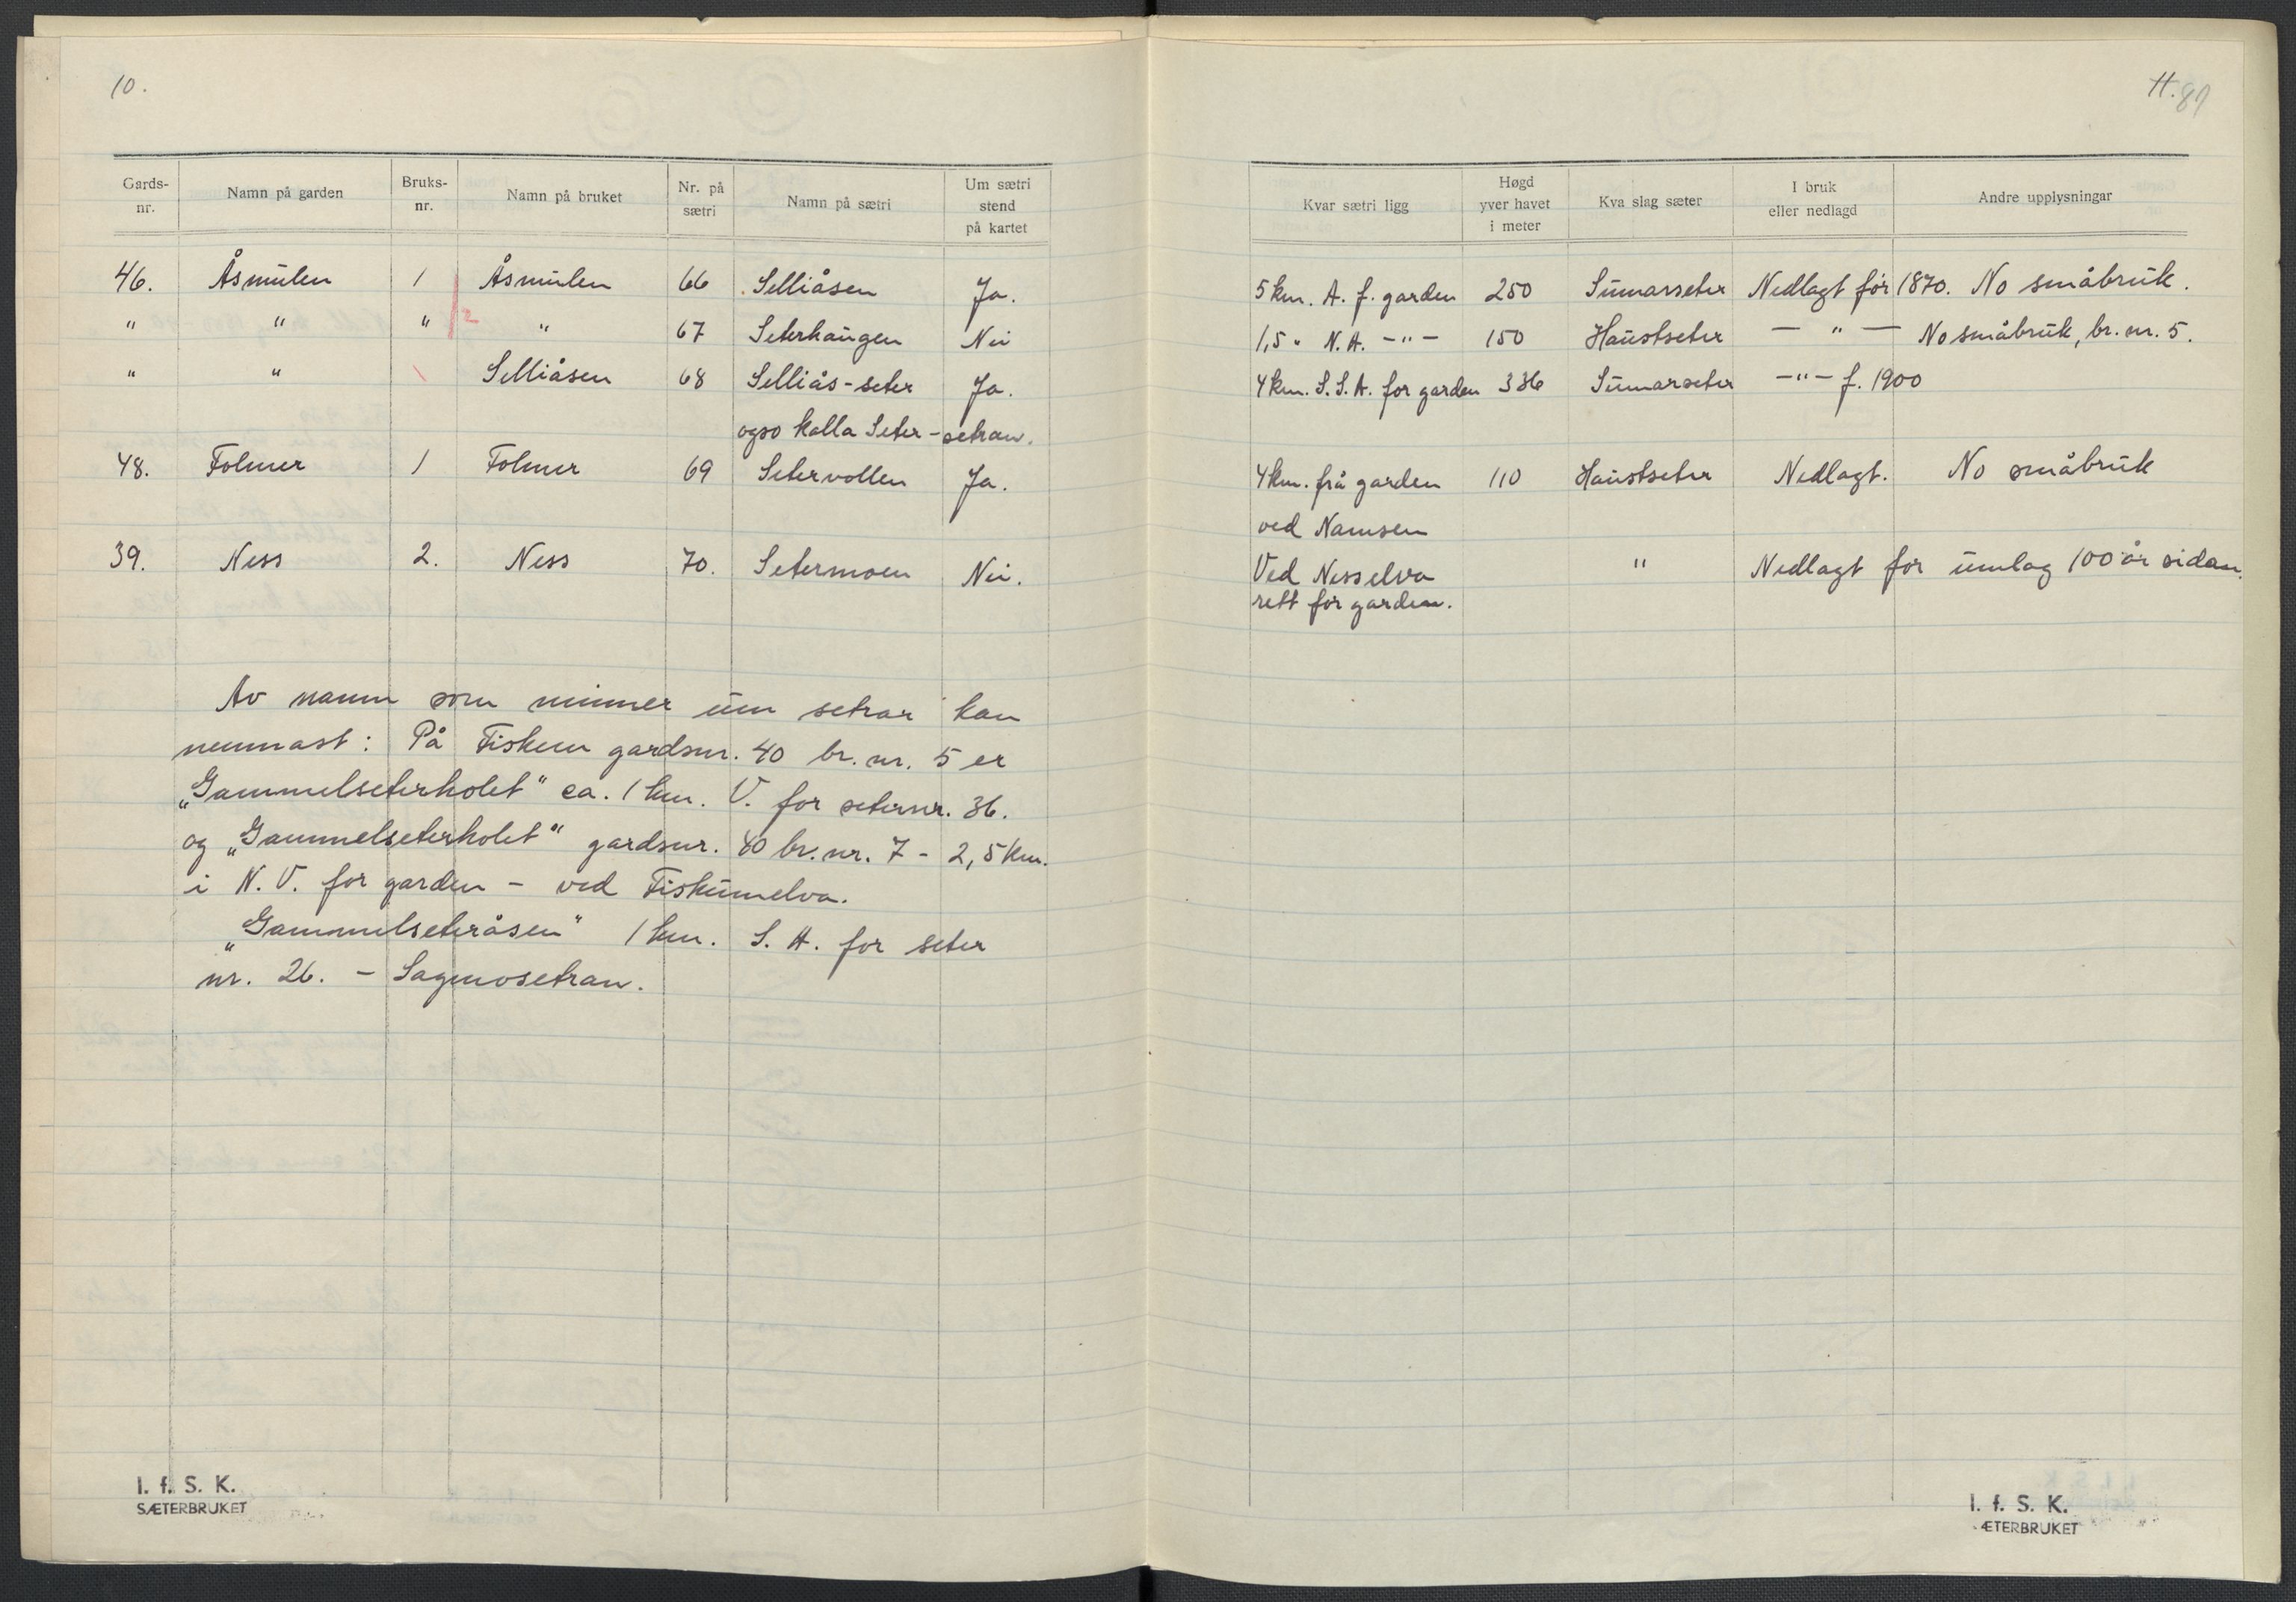 10.
Gards-nr. Namn på garden Bruks-nr. Namn på bruket Nr. på sætri Namn på sætri Um sætri stend på kartet
46. Åsmulen 1 Åsmulen 66 Selliåsen Ja.
" " " 2 " 67 Seterhaugen Nei
" " Selliåsen 68 Selliås-seter Ja.
ogso kalla Seter-setran.
48. Folmer 1 Folmer 69 Setervollen Ja.
39. Ness 2. Ness 70. Setermoen Nei.
Av namn som minner um setrar kan
nemnast: På Fiskem gardsnr. 40 br. nr. 5 er
„Gammelseterholet" ca. 1 km. V. for seternr. 36.
og „Gammelseterholet" gardsnr. 40 br. nr. 7 - 2,5 km.
i N. V. for garden - ved Fiskumelva.
„Gammelseteråsen" 1 km. S. A. for seter
nr. 26. - Sagmosetran.
I. f. S. K.
SÆTERBRUKET
11. 89
Kvar sætri ligg Høgd yver havet i meter Kva slag sæter I bruk eller nedlagd Andre upplysningar
5 km. A. f. garden 250 Sumarseter Nedlagt før 1870. No småbruk.
1,5 " N. A. -"- 150 Haustseter - " - No småbruk, br. nr. 5.
4 km. S. S. A. for garden 336 Sumarseter -"- f. 1900
4 km. frå garden 110 Haustseter Nedlagt. No småbruk
ved Namsen
Ved Nesselva " Nedlagt for umlag 100 år sidan.
rett for garden.
I. f. S. K.
ÆTERBRUKET